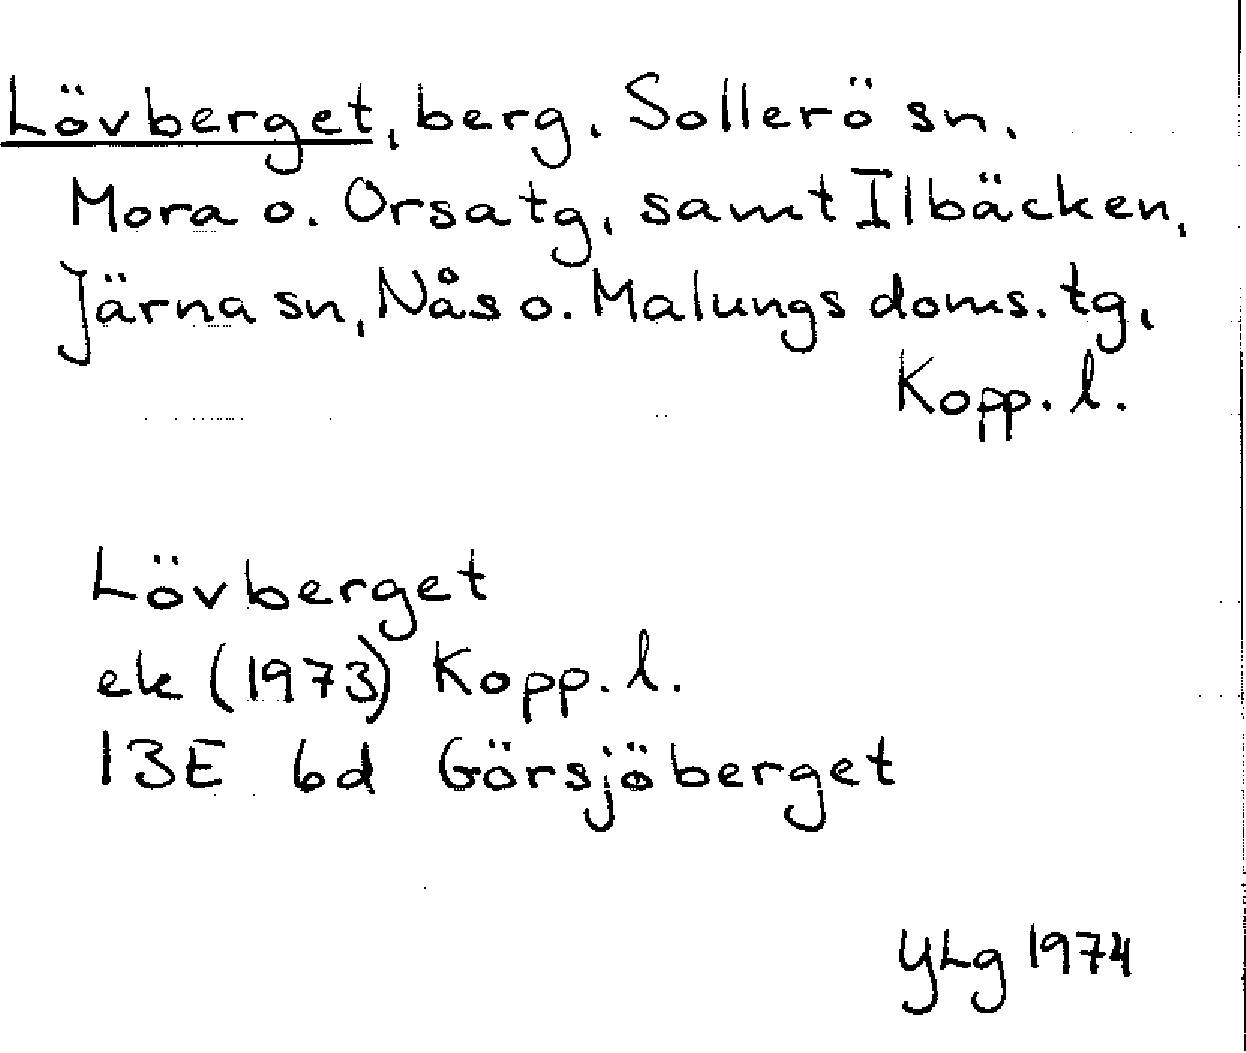 Lövberget, berg, Sollerö sn,
Mora o. Orsa tg, samt Ilbäcken,
Järna sn, Nås o. Malungs doms. tg,
Kopp. l.
Lövberget
ek (1973) Kopp. l.
13E 6d Görsjöberget
YLg 1974